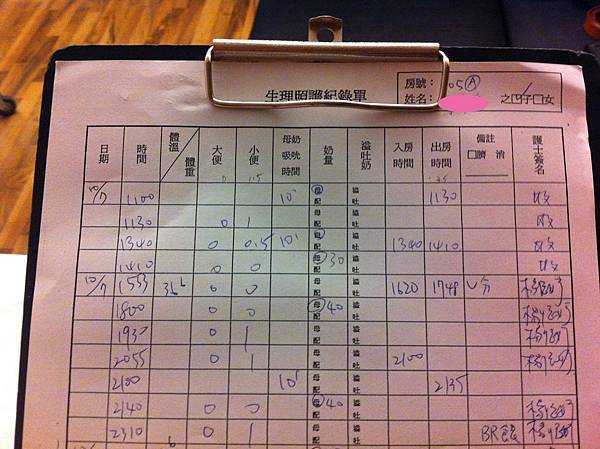 生理照護紀錄單
房號： 05Ⓐ
姓名： 之☑子☐女
日期 時間 體溫 體重 大便 小便 母奶吸吮時間 奶量 溢吐奶 入房時間 出房時間 備註 ☐臍 消 護士簽名
10/7 1100 10' 母 配 溢 吐 1130
1130 0 1 母 配 溢 吐
1340 0 0.5 10' 母 配 溢 吐 1340 1410
1410 0 0 母 30 配 溢 吐
10/7 1555 36⁶ 0 0 母 配 溢 吐 1620 1748
1800 0 0 母 40 配 溢 吐
1930 0 1 母 配 溢 吐
2055 0 1 母 配 溢 吐 2100
2100 10' 母 配 溢 吐 2135
2140 0 0 母 40 配 溢 吐
2310 0 1 母 配 溢 吐 BR餵